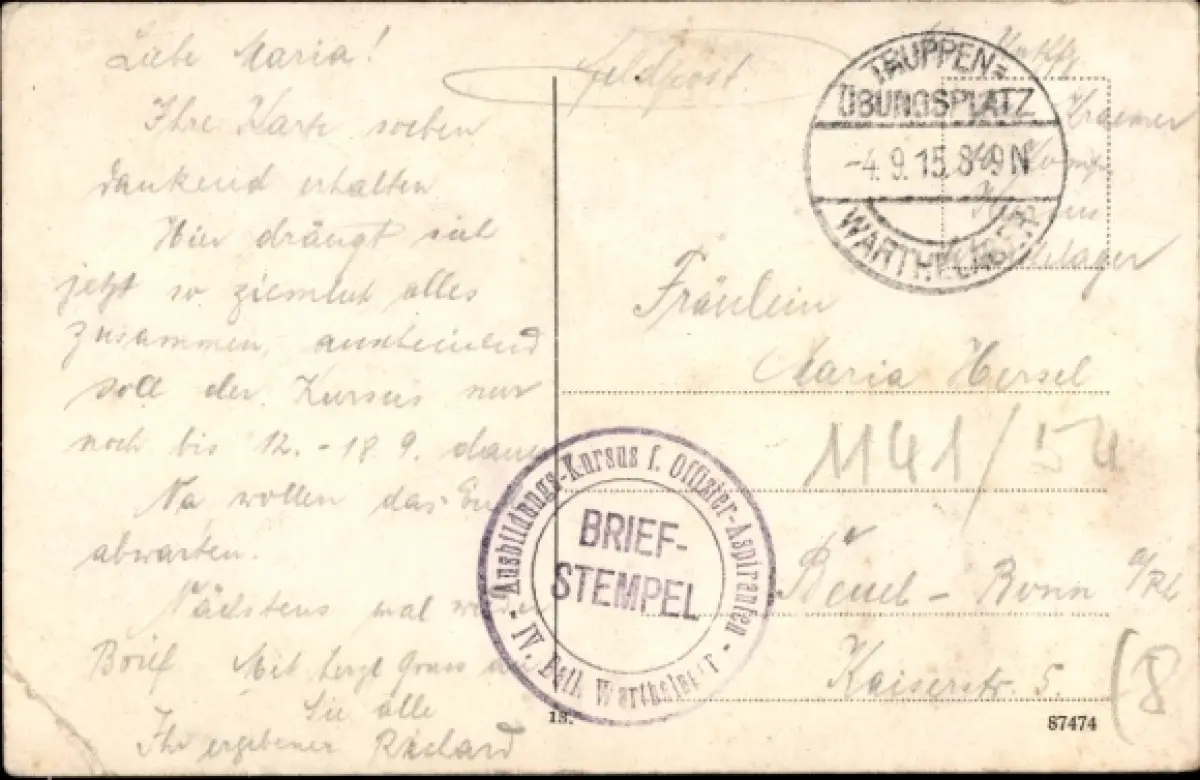 Liebe Maria!
Ihre Karte soeben
dankend erhalten
Hier drängt sich
jetzt so ziemlich alles
zusammen, anscheinend
soll der Kursus nur
noch bis 12. - 18 9. dauern
Na wollen das
abwarten.
Nächstens mal
Brief Mit herzl Gruss an
Sie alle
Ihr ergebener Richard
Feldpost
TRUPPEN=
ÜBUNGSPLATZ
-4.9.15.8-9N
WARTHELAGER
Kraemer
Fräulein
Maria Hersel
1141/54
Beuel - Bonn a/Rh
Kaiserstr. 5.
(8
Ausbildungs-Kursus f. Offizier-Aspiranten -
BRIEF-
STEMPEL
- IV. Batl. Warthelager -
13.
87474